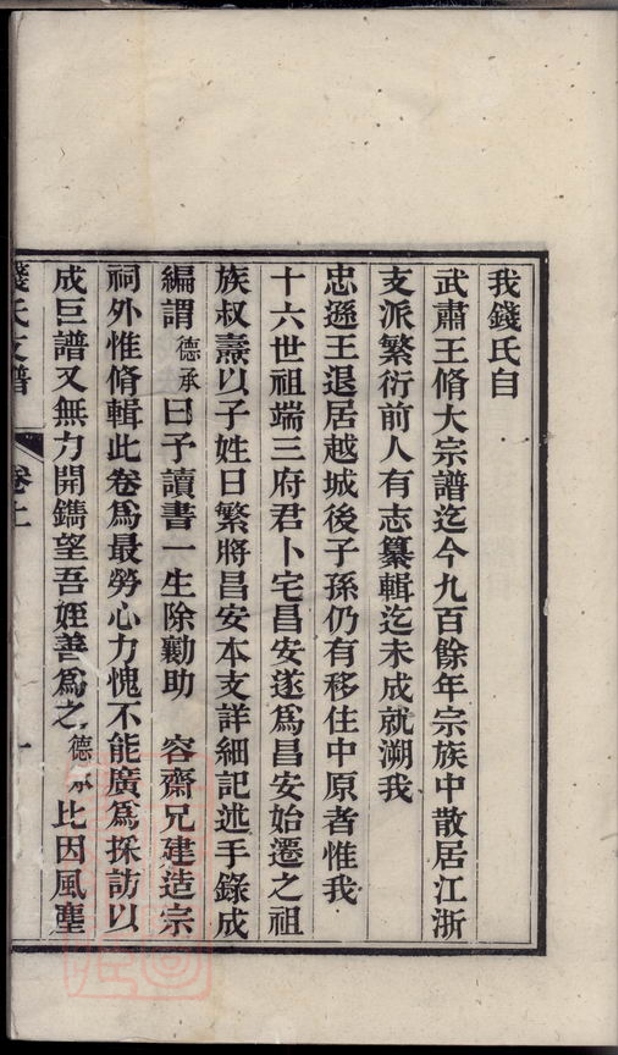 我錢氏自
武肅王脩大宗譜迄今九百餘年宗族中散居江浙
支派繁衍前人有志纂輯迄未成就溯我
忠遜王退居越城後子孫仍有移住中原者惟我
十六世祖端三府君卜宅昌安遂爲昌安始遷之祖
族叔燾以子姓日繁將昌安本支詳細記述手錄成
編謂德承曰予讀書一生除勷助　容齋兄建造宗
祠外惟脩輯此卷爲最勞心力愧不能廣爲採訪以
成巨譜又無力開鐫望吾姪善爲之德承比因風塵
錢氏支譜　卷上　一